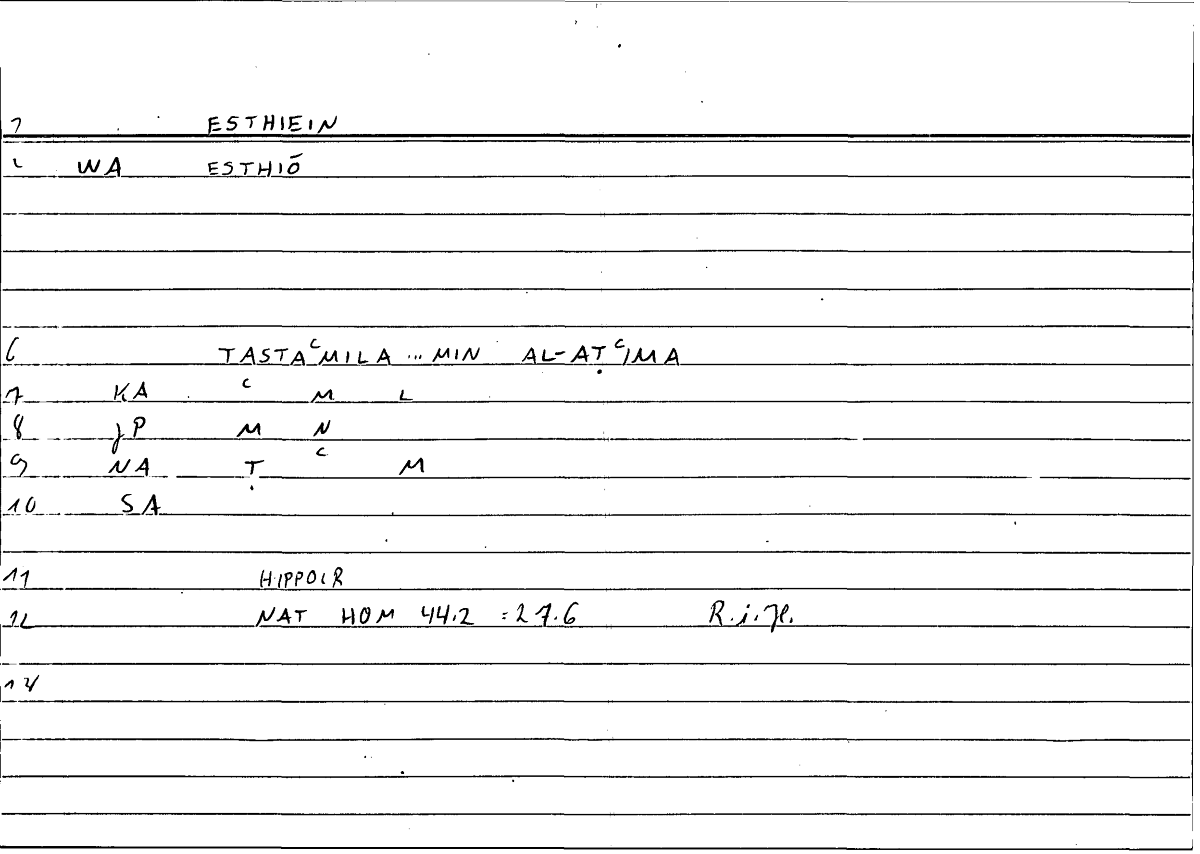 1 ESTHIEIN
WA ESTHIŌ
6 TASTAᶜMILA ... MIN AL-AṬᶜIMA
7 KA ᶜ M L
8 JP M N
9 NA Ṭ ᶜ M
10 SA
11 HIPPOCR
12 NAT HOM 44.2 = 27.6
14